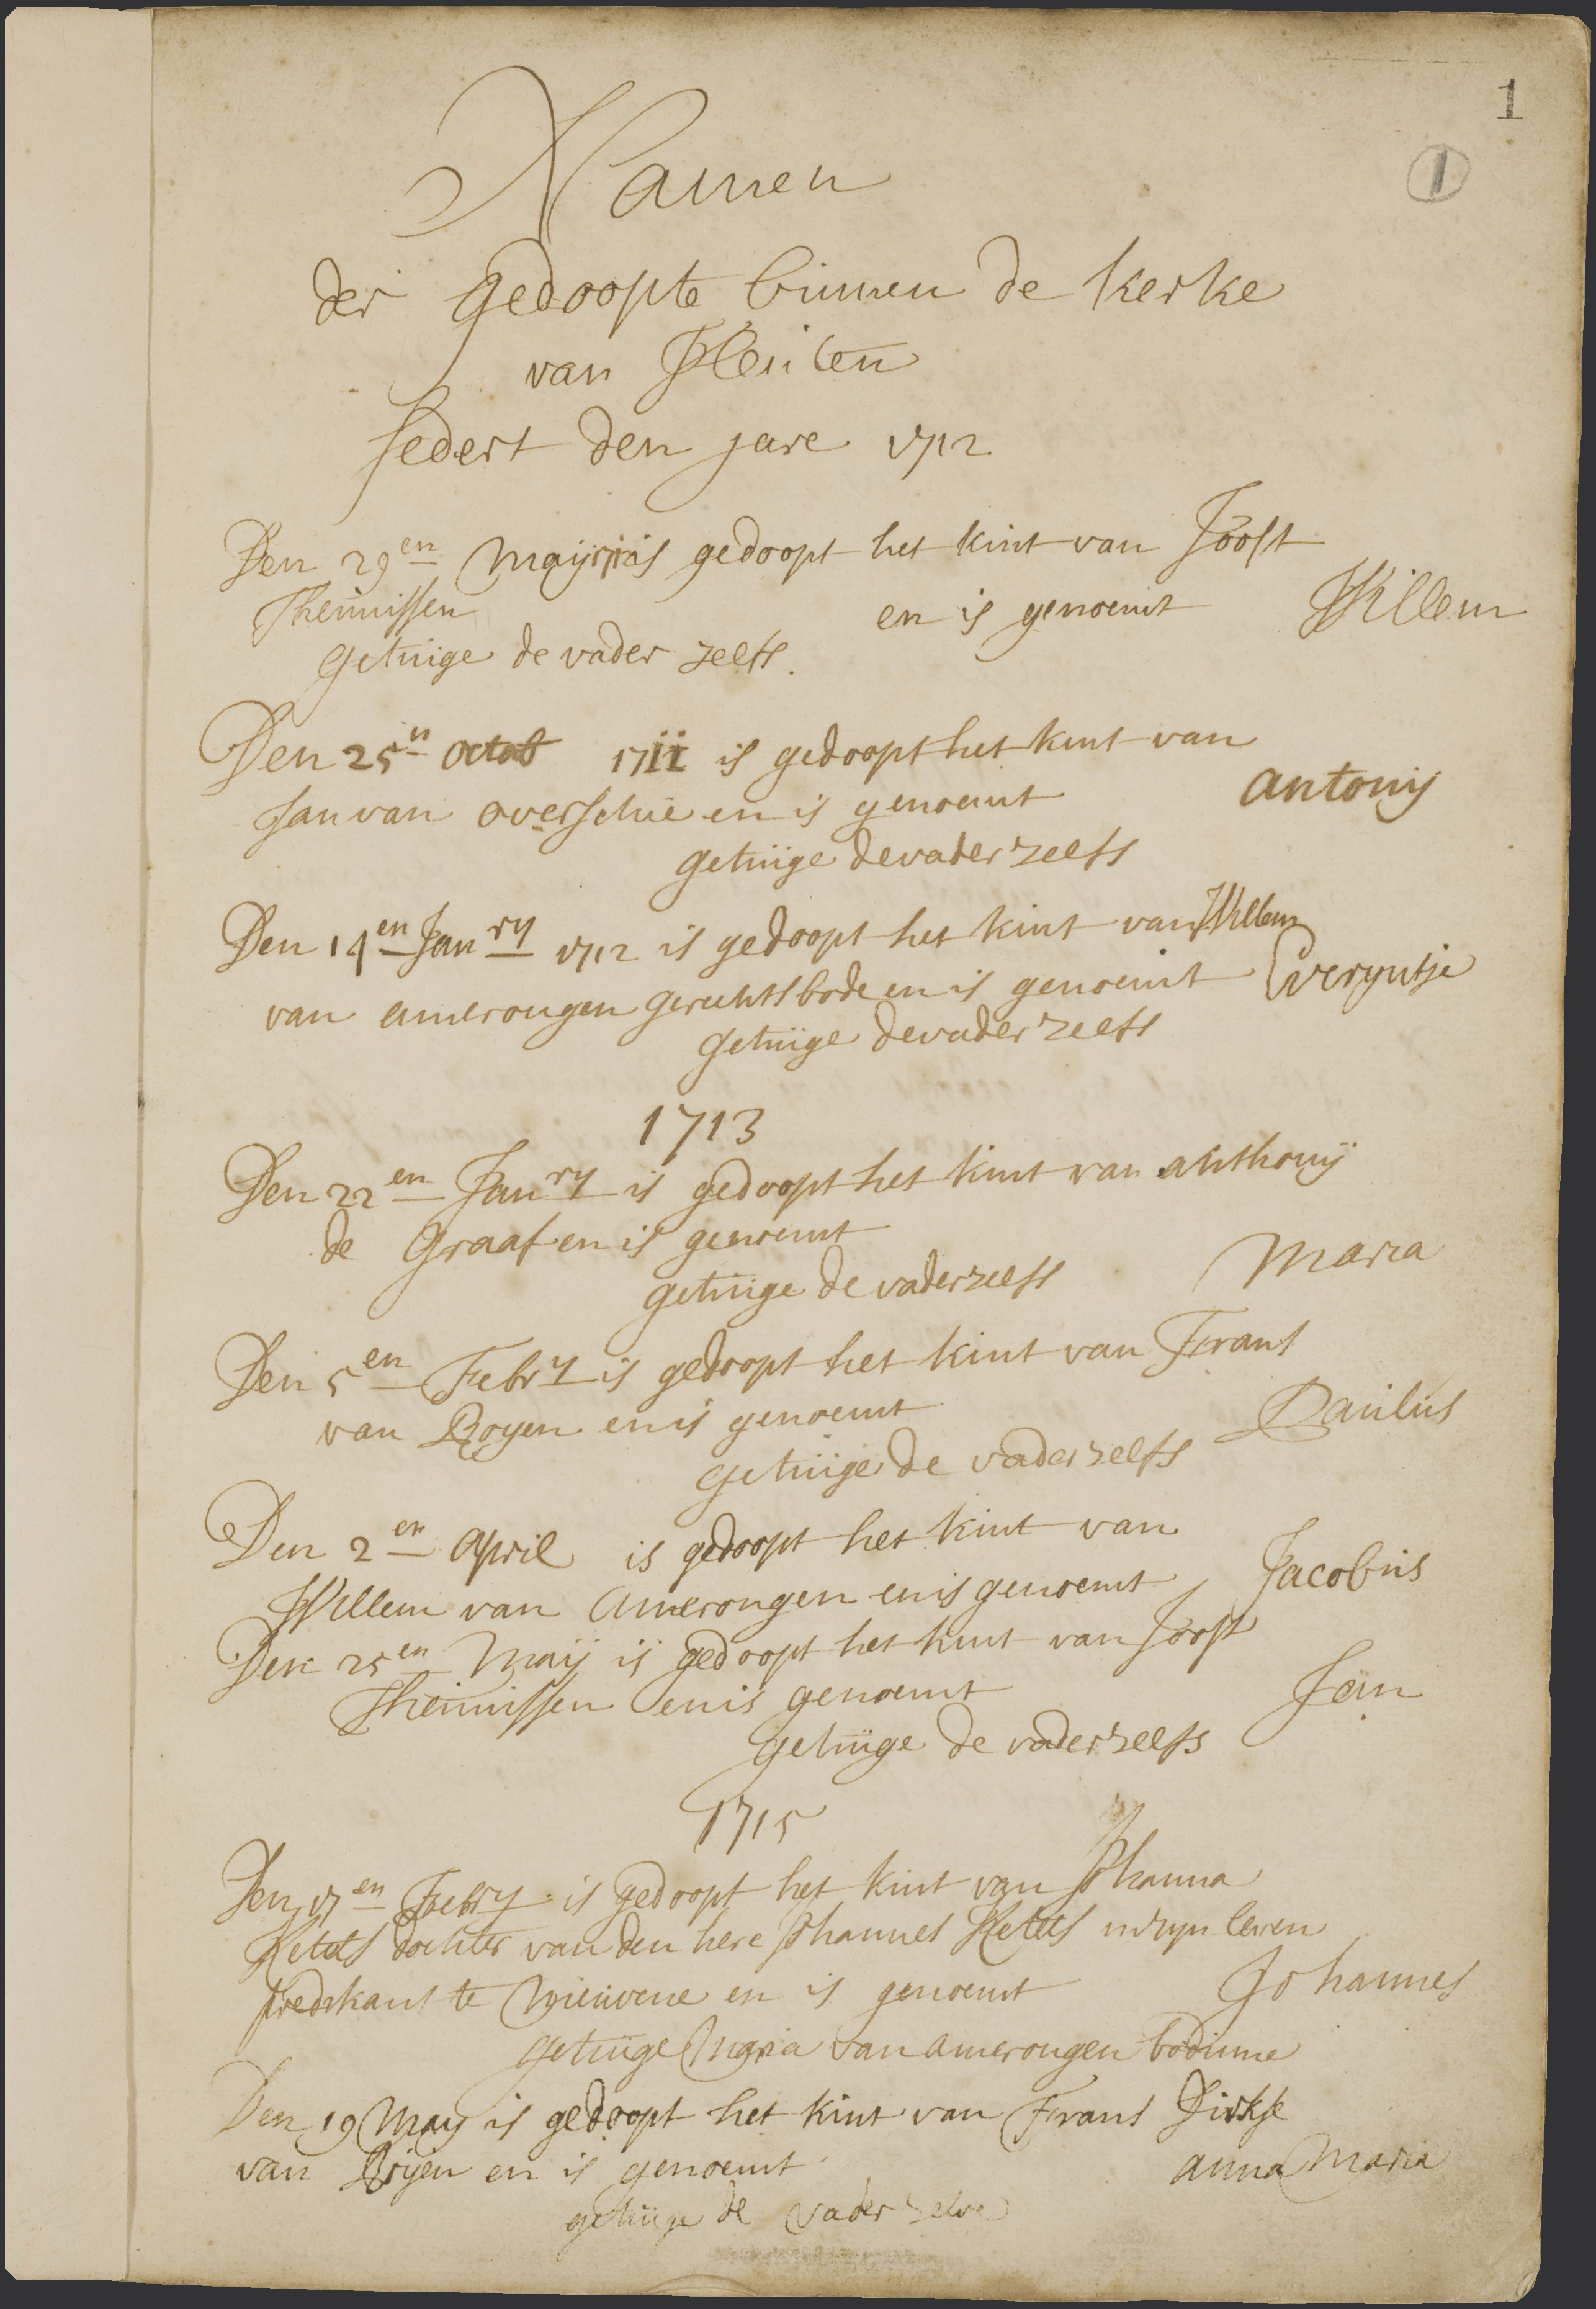 1
1
Namen
der gedoopte binnen de kerke
van
sedert den jare 1712
Den 29en Maij is gedoopt het kint van Joost
Theunissen en is genoemt Willem
getuige de vader zelfs.
Den 25n Octob 1711 is gedoopt het kint van
Jan van Overschie en is genoemt Antonij
getuige de vader zelfs
Den 14en Janry 1712 is gedoopt het kint van Willem
van Amerongen gerechtsbode en is genoemt Weryntje
getuige de vader zelfs
1713
Den 22en Janry is gedoopt het kint van Anthonij
de Graaf en is genoemt
Maria
getuige de vader zelfs
Den 5en Febry is gedoopt het kint van Frans
van Royen en is genoemt Paulus
getuige de vader zelfs
Den 2en April is gedoopt het kint van
Willem van Amerongen en is genoemt Jacobus
Den 25en Maij is gedoopt het kint van Joost
Theunissen en is genoemt Jan
getuige de vader zelfs
1715
Den 17en Febry is gedoopt het kint van Johanna
Ketels dochter van den here Johannes Ketels in zyn leven
predikant te en is genoemt Johannes
getuige Maria van Amerongen bodinne
Den 19 May is gedoopt het kint van Frans Dirkse
van Roijen en is genoemt Anna Maria
getuige de vader zelve